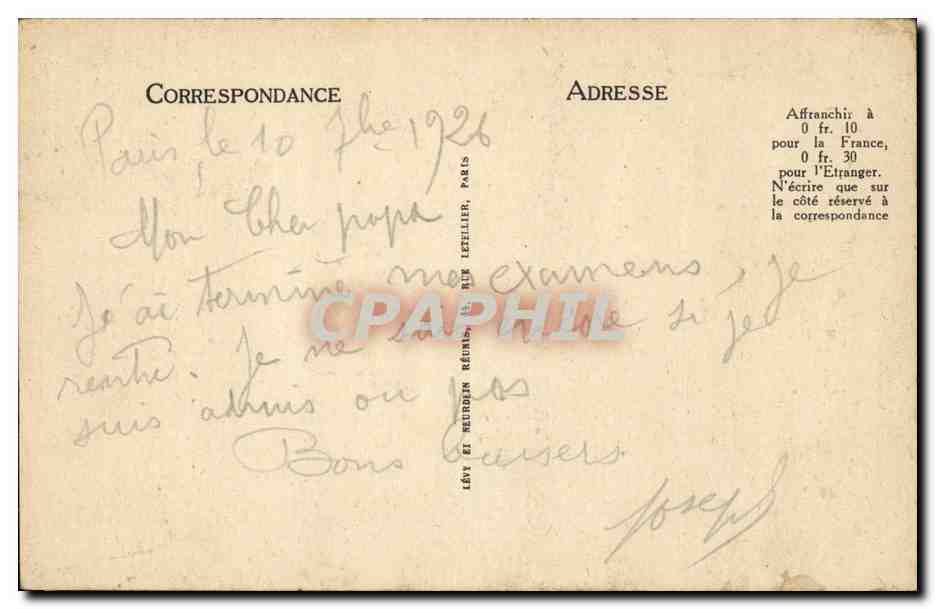 CORRESPONDANCE
ADRESSE
Affranchir à
0 fr. 10
pour la France,
0 fr. 30
pour l'Etranger.
N'écrire que sur
le côté réservé à
la correspondance
Paris le 10 7bre 1926
Mon Cher papa
J'ai terminé mes examens, je
rentre. Je ne sais encore si je
suis admis ou pas
Bons baisers
Joseph
LÉVY ET NEURDEIN RÉUNIS, 44, RUE LETELLIER, PARIS
CPAPHIL